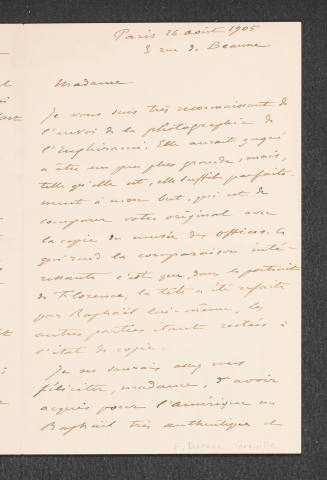 Paris 26 août 1905
3 rue de Beaune
Madame
Je vous suis très reconnaissant de
l'envoi de la photographie de
l'Inghirami. Elle aurait gagné
à être un peu plus grande, mais,
telle qu'elle est, elle suffit parfaite-
ment à mon but, qui est de
comparer votre original avec
la copie du musée des offices. Ce
qui rend la comparaison inté-
ressante c'est que, dans le portrait
de Florence, la tête a été refaite
par Raphaël lui-même, les
autres parties étant restées à
l'état de copie.
Je ne saurais assez vous
féliciter, madame, d'avoir
acquis pour l'Amérique un
Raphaël très authentique de